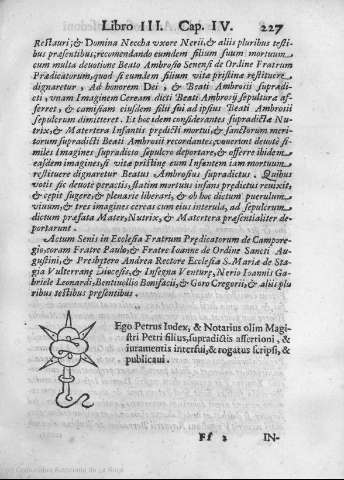 Libro III. Cap. IV. 227
Restauri, & Domina Neccha vxore Nerii, & aliis pluribus testi-
bus præsentibus, recomendando eumdem filium suum mortuum
cum multa deuotione Beato Ambrosio Senensi de Ordine Fratrum
Prædicatorum, quod si eumdem filium vita pristina restituere
dignaretur, Ad honorem Dei, & Beati Ambrosii supradi-
cti, vnam Imaginem Ceream dicti Beati Ambrosij sepultura af-
ferret, & camisiam eiusdem filii sui ad ipsius Beati Ambrosii
sepulcrum dimitteret. Et hoc idem considerantes supradictæ Nu-
trix, & Matertera Infantis predicti mortui, & sanctorum meri-
torum supradicti Beati Ambrosii recordantes, vouerunt deuotè si-
miles Imagines supradicto sepulcro deportare, & offerre ibidem
easdem imagines, si vitæ pristinæ eum Infantem iam mortuum
restituere dignaretur Beatus Ambrosius supradictus. Quibus
votis sic deuotè peractis, statim mortuus infans predictus reuixit,
& cepit sugere, & plenariè liberari, & ob hoc dictum puerulum
viuum, & tres imagines cereas cum eius interula, ad sepulcrum
dictum præfata Mater, Nutrix, & Matertera præsentialiter de-
portarunt.
Actum Senis in Ecclesia Fratrum Predicatorum de Campore-
gio, coram Fratre Paulo, & Fratre Ioanne de Ordine Sancti Au-
gustini, & Presbytero Andrea Rectore Ecclesia S. Mariæ de Sta-
gia Vulterranæ Diœcesis, & Insegna Venturæ, Nerio Ioannis Ga-
briele Leonardi, Bentiuollio Bonifacii, & Goro Gregorii, & aliis plu
ribus testibus præsentibus.
Ego Petrus Index, & Notarius olim Magi-
stri Petri filius, supradictis assertioni, &
iuramentis interfui, & rogatus scripsi, &
publicaui.
Ff 2 IN-